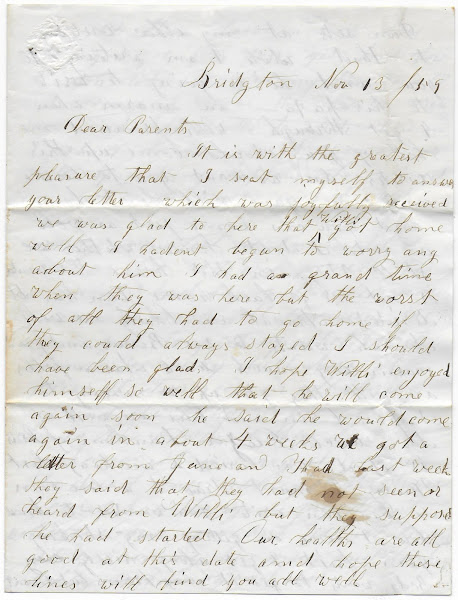 Bridgton Nov 13 /59
Dear Parents
It is with the greatest
pleasure that I seat myself to answer
your letter which was joyfully received
we was glad to here that Willi got home
well I hadent began to worry any
about him I had a grand time
when they was here but the worst
of all they had to go home if
they could always stayed I should
have been glad I hope Willi enjoyed
himself so well that he will come
again soon he said he would come
again in about 4 weeks we got a
letter from Jane and last week
they said that they had not seen or
heard from Willi but they suppose
he had started. Our healths are all
good at this date and hope these
lines will find you all well